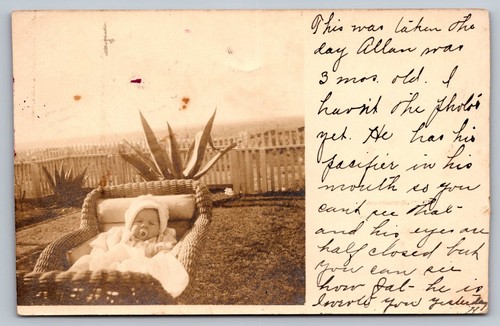 This was taken the
day Allan was
3 mos. old. I
havn't the Photo's
yet. He has his
pacifier in his
mouth so you
can't see that
and his eyes are
half closed but
you can see
how fat he is
I wrote you yesterday